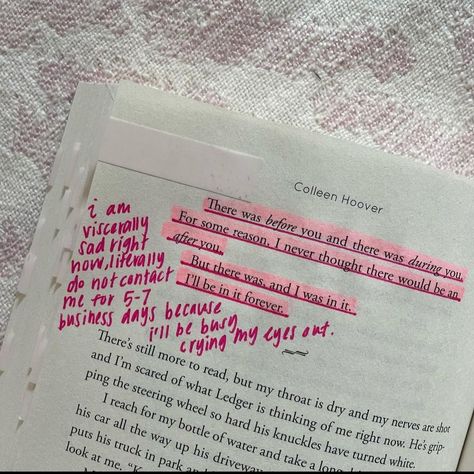 Colleen Hoover
There was before you and there was during you.
For some reason, I never thought there would be an
after you.
But there was, and I was in it.
I'll be in it forever.
i am
viscerally
sad right
now, literally
do not contact
me for 5-7
business days because
i'll be busy
crying my eyes out.
There's still more to read, but my throat is dry and my nerves are shot
and I'm scared of what Ledger is thinking of me right now. He's grip-
ping the steering wheel so hard his knuckles have turned white.
I reach for my bottle of water and take a long
his car all the way up his driveway
puts his truck in park
look at me.